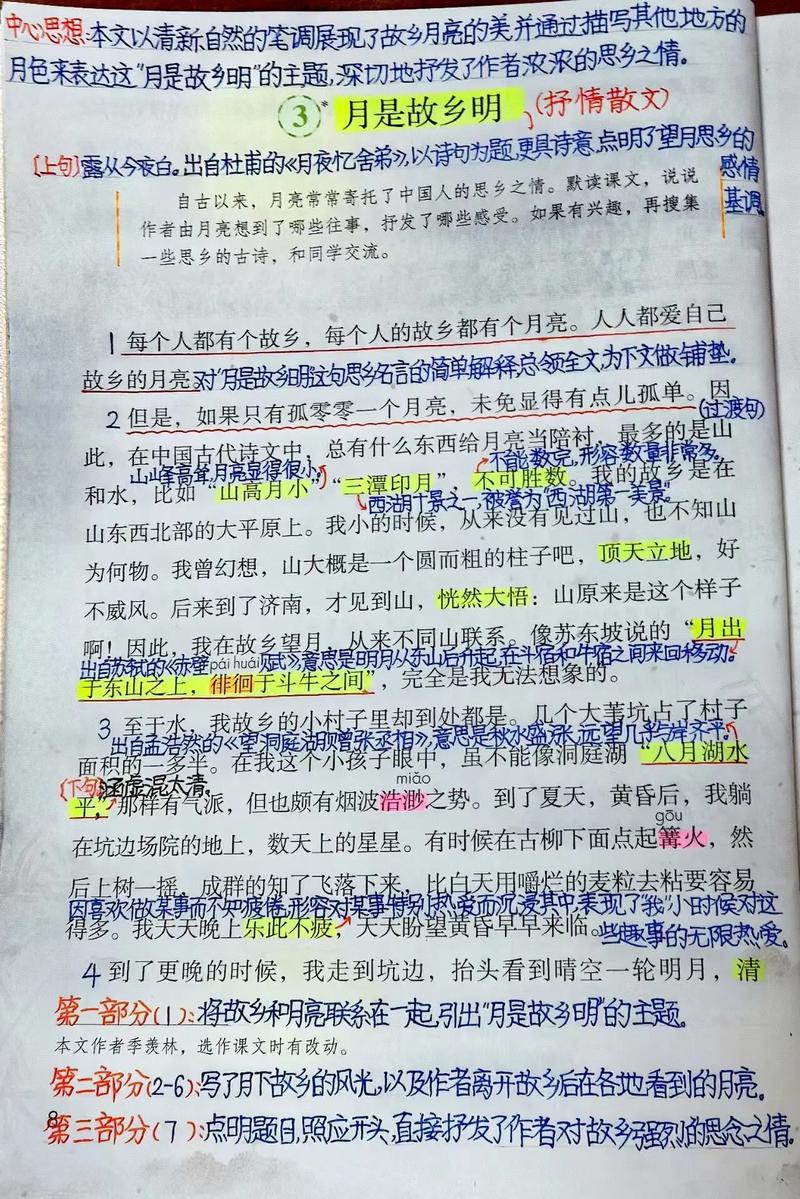 中心思想:本文以清新自然的笔调展现了故乡月亮的美,并通过描写其他地方的
月色来表达这“月是故乡明”的主题,深切地抒发了作者浓浓的思乡之情。
3* 月是故乡明 (抒情散文)
[上句]露从今夜白。出自杜甫的《月夜忆舍弟》,以诗句为题,更具诗意,点明了望月思乡的
感情
基调。
自古以来，月亮常常寄托了中国人的思乡之情。默读课文，说说
作者由月亮想到了哪些往事，抒发了哪些感受。如果有兴趣，再搜集
一些思乡的古诗，和同学交流。
1 每个人都有个故乡，每个人的故乡都有个月亮。人人都爱自己
故乡的月亮。对“月是故乡明”这句思乡名言的简单解释,总领全文,为下文做铺垫。
2 但是，如果只有孤零零一个月亮，未免显得有点儿孤单。因
(过渡句)
此，在中国古代诗文中，总有什么东西给月亮当陪衬，最多的是山
山峰高耸,月亮显得很小。
不能数完,形容数量非常多。
和水，比如“山高月小”“三潭印月”，不可胜数。我的故乡是在
西湖十景之一,被誉为“西湖第一美景”。
山东西北部的大平原上。我小的时候，从来没有见过山，也不知山
为何物。我曾幻想，山大概是一个圆而粗的柱子吧，顶天立地，好
不威风。后来到了济南，才见到山，恍然大悟：山原来是这个样子
啊！因此，我在故乡望月，从来不同山联系。像苏东坡说的“月出
出自苏轼的《赤壁赋》,意思是明月从东山后升起,在斗宿和牛宿之间来回移动。
pái huái
于东山之上，徘徊于斗牛之间”，完全是我无法想象的。
3 至于水，我故乡的小村子里却到处都是。几个大苇坑占了村子
出自孟浩然的《望洞庭湖赠张丞相》,意思是秋水盛涨,远望几乎与岸齐平。
面积的一多半。在我这个小孩子眼中，虽不能像洞庭湖“八月湖水
[下句]涵虚混太清。
miǎo
平”那样有气派，但也颇有烟波浩渺之势。到了夏天，黄昏后，我躺
gōu
在坑边场院的地上，数天上的星星。有时候在古柳下面点起篝火，然
后上树一摇，成群的知了飞落下来，比白天用嚼烂的麦粒去粘要容易
因喜欢做某事而不知疲倦,形容对某事特别热爱而沉浸其中,表现了“我”小时候对这
得多。我天天晚上乐此不疲，天天盼望黄昏早早来临。
些趣事的无限热爱。
4 到了更晚的时候，我走到坑边，抬头看到晴空一轮明月，清
第一部分(1):将故乡和月亮联系在一起,引出“月是故乡明”的主题。
本文作者季羡林，选作课文时有改动。
第二部分(2-6):写了月下故乡的风光,以及作者离开故乡后在各地看到的月亮。
8
第三部分(7):点明题目,照应开头,直接抒发了作者对故乡强烈的思念之情。